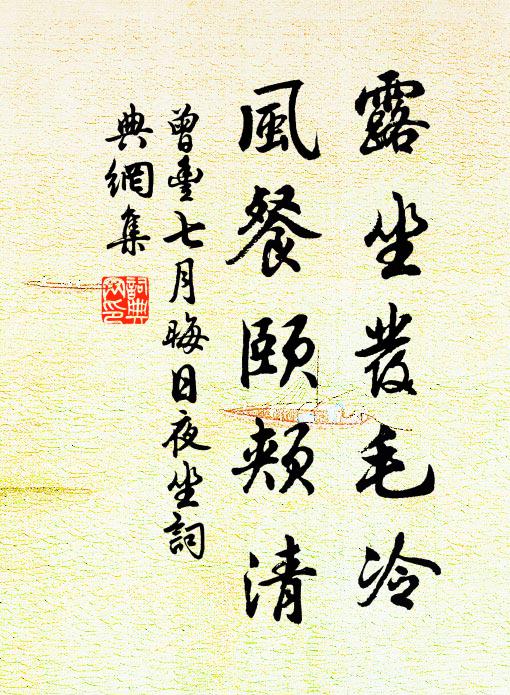 露坐發毛冷
風餐頤頰清
曾豐七月晦日夜坐詞
典網集
詞典
網印